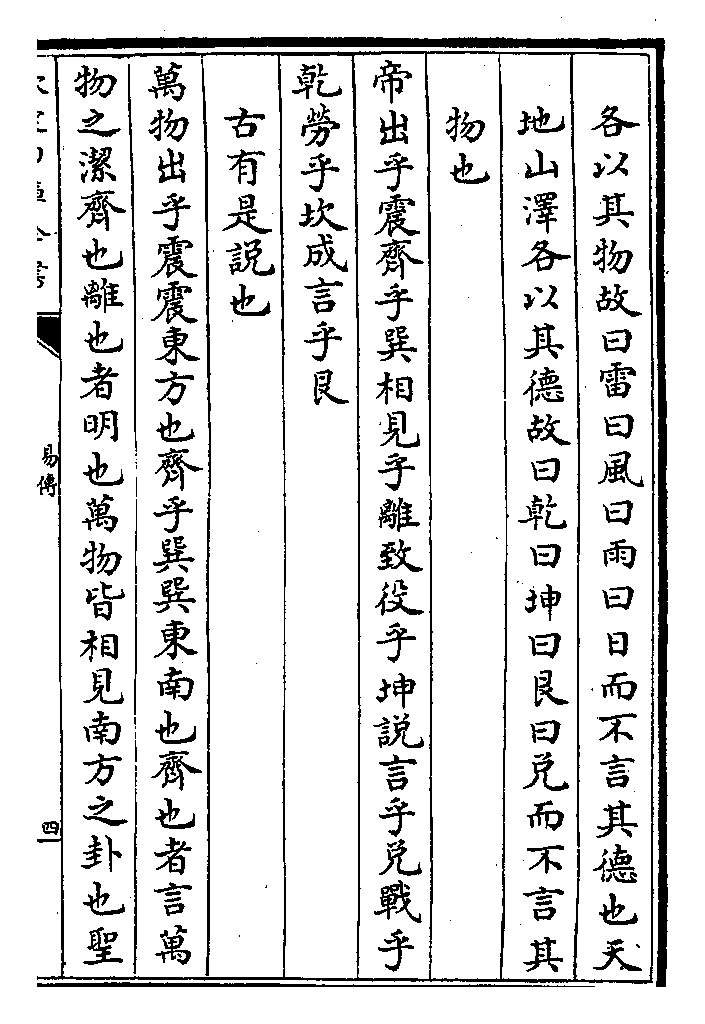 各以其物故曰雷曰風曰雨曰日而不言其德也天
地山澤各以其德故曰乾曰坤曰艮曰兑而不言其
物也
帝出乎震齊乎巽相見乎離致役乎坤説言乎兑戰乎
乾勞乎坎成言乎艮
古有是説也
萬物出乎震震東方也齊乎巽巽東南也齊也者言萬
物之潔齊也離也者明也萬物皆相見南方之卦也聖
易傳
四